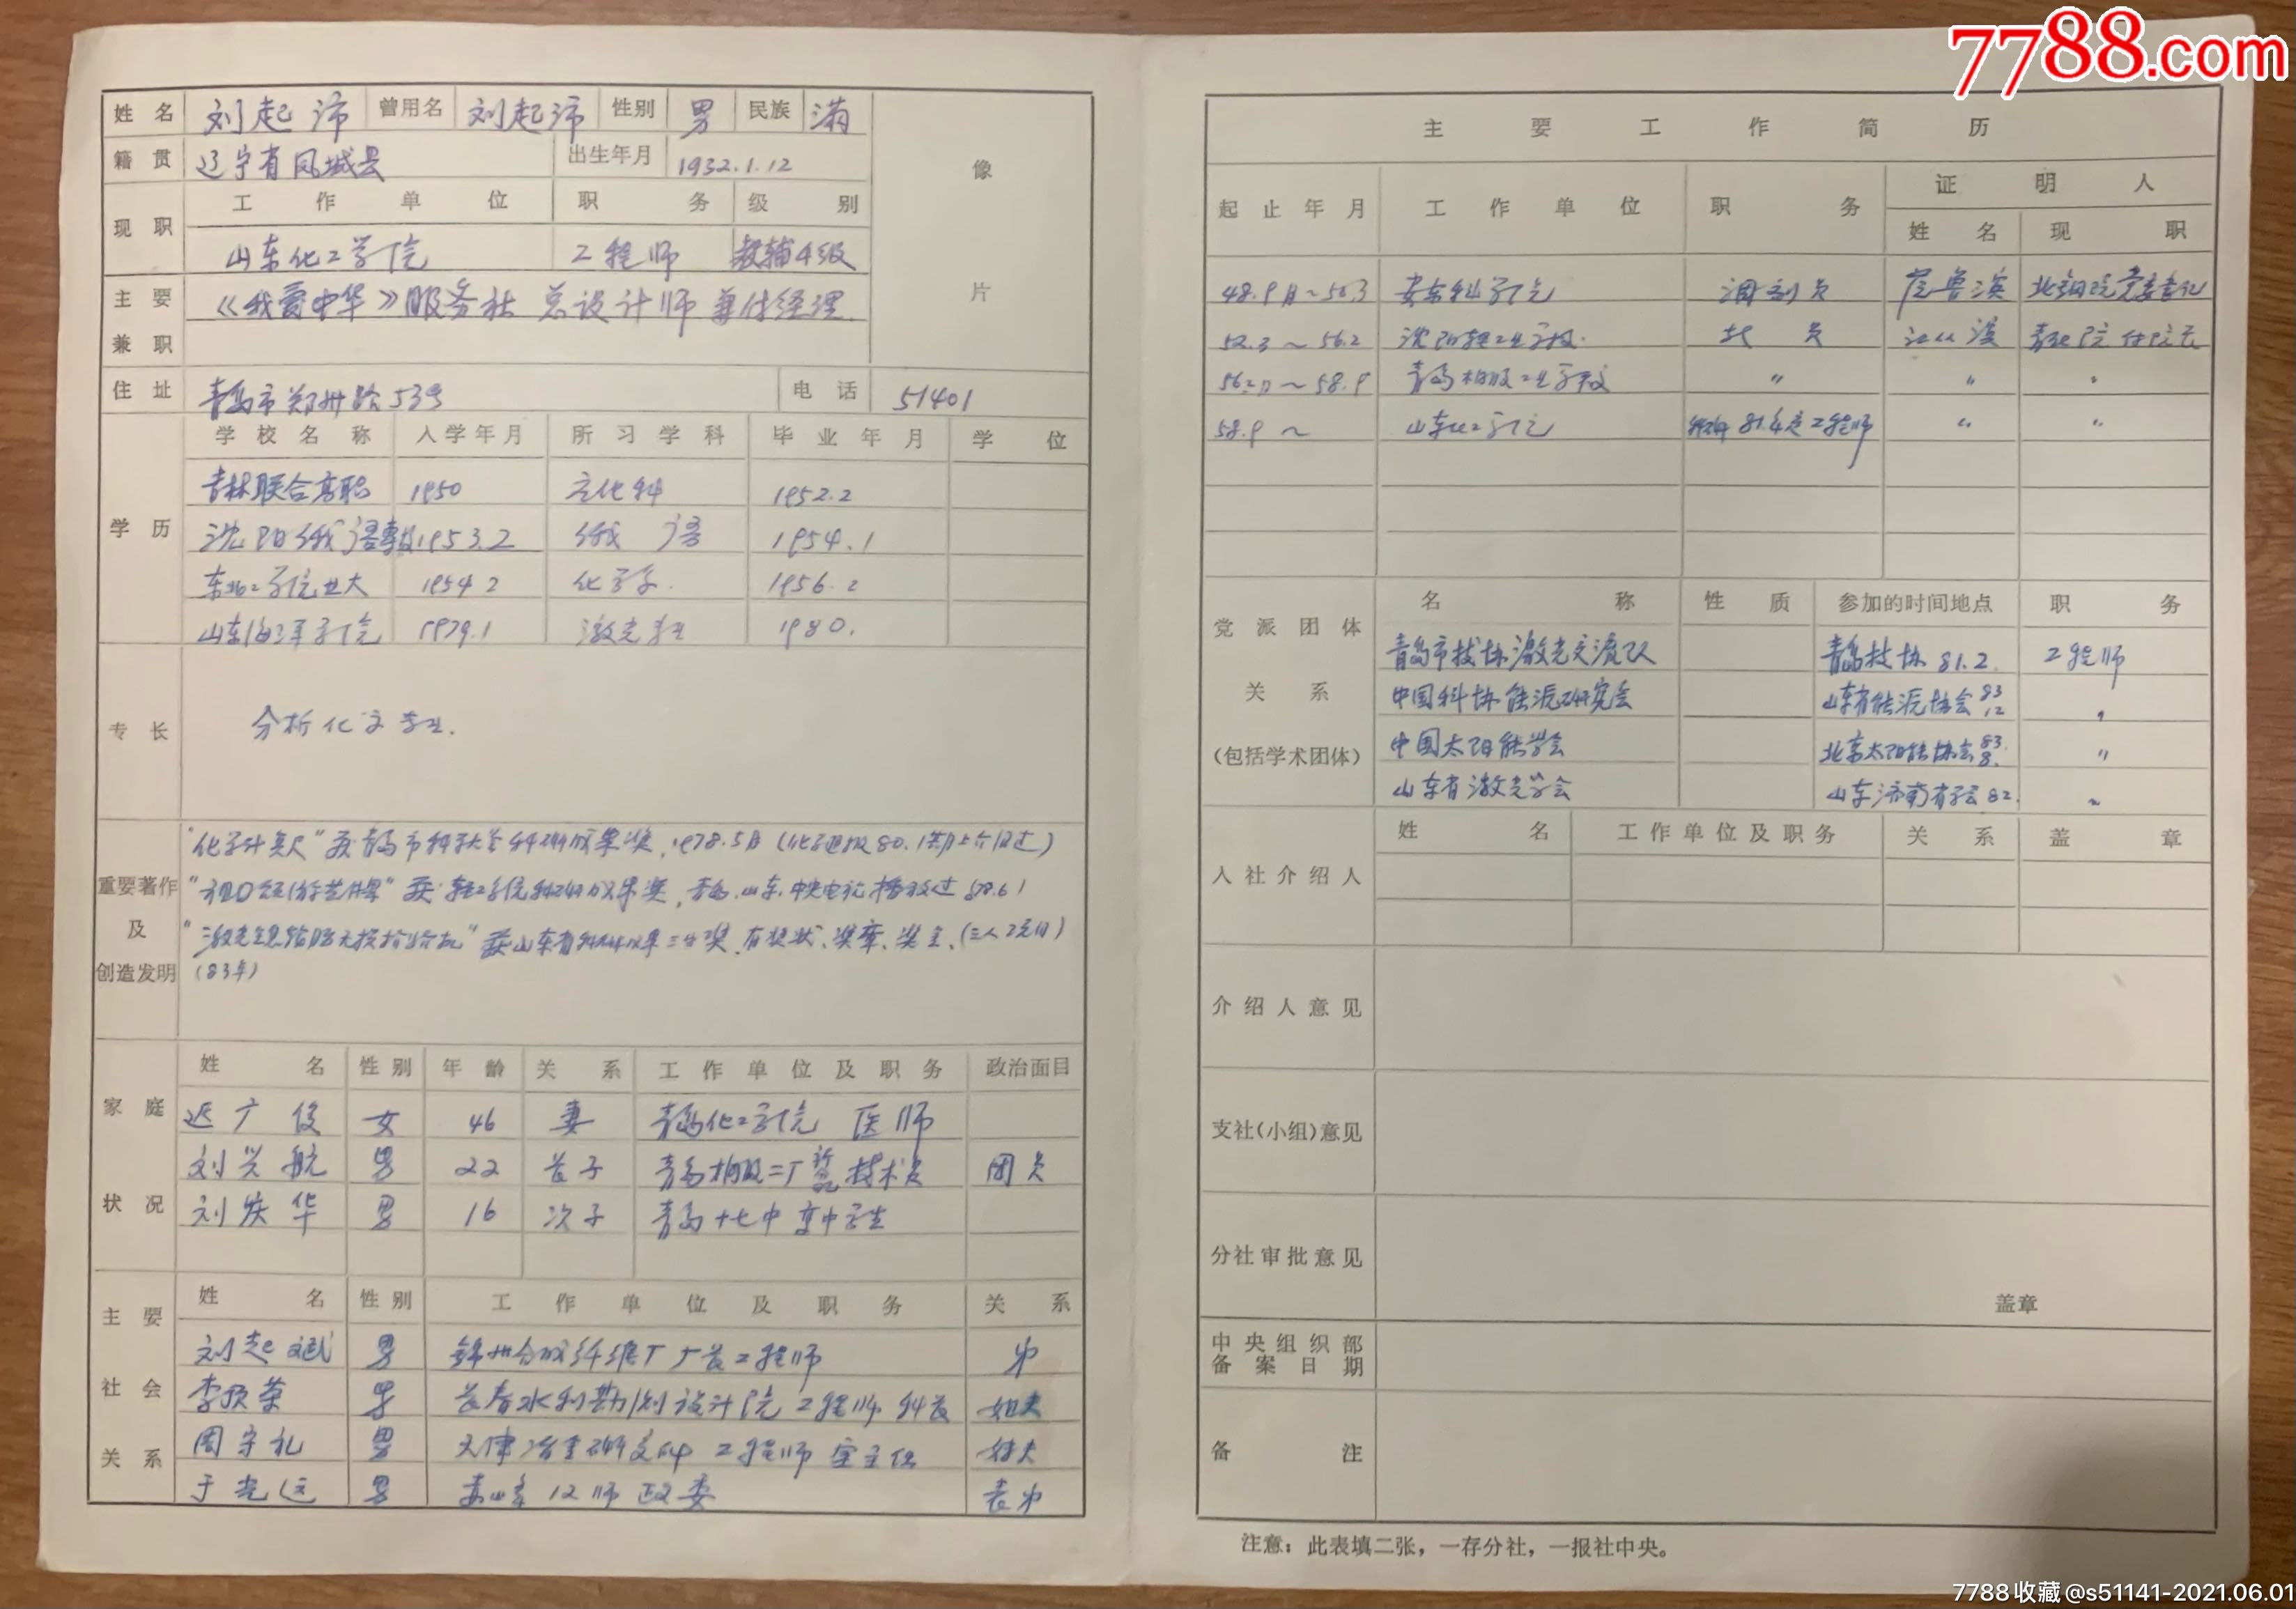 7788.com
姓名 刘起沛 曾用名 刘起沛 性别 男 民族 满
籍贯 辽宁省凤城县 出生年月 1932.1.12
像片
现职 工作单位 职务 级别
山东化工学院 工程师 教辅4级
主要兼职 《我爱中华》服务社 总设计师 兼付经理
住址 青岛市郑州路53号 电话 51401
学历 学校名称 入学年月 所习学科 毕业年月 学位
联合高职 1950 化科 1952.2
沈阳俄语专 1953.2 俄语 1954.1
东北工学院业大 1954.2 化学系. 1956.2
山东海洋学院 1979.1 激光 1980.
专长 分析化学专业.
重要著作及创造发明
"化学计算尺"获青岛市科技大会科研成果奖,1978.5月
获轻工学院科研成果奖,青岛.山东.中央电视播放过
获山东省科研成果三等奖.有奖状、奖章、奖金、
(83年)
家庭状况 姓名 性别 年龄 关系 工作单位及职务 政治面目
迟广俊 女 46 妻 青岛化工学院 医师
刘兴航 男 22 长子 青岛橡胶二厂 技术员 团员
刘发华 男 16 次子 青岛十七中 高中学生
主要社会关系 姓名 性别 工作单位及职务 关系
刘起斌 男 锦州合成纤维厂 厂长工程师 弟
李顶荣 男 长春水利勘测设计院 工程师 科长 姐夫
周守礼 男 天津冶金研究所 工程师 室主任 妹夫
于光远 男 12师 政委 表弟
主要工作简历
起止年月 工作单位 职务 证明人
姓名 现职
48.9月~50.3 安东科学院 党委书记
52.3~56.2 沈阳轻工业学校. 员
56.2月~58.9 青岛橡胶工业学校 〃 〃 〃
58.9~ 山东化工学院 81.4定工程师 〃 〃
党派团体关系(包括学术团体) 名称 性质 参加的时间地点 职务
青岛市技协激光交流队 青岛技协 81.2. 工程师
中国科协能源研究会 山东省能源协会 83.12 〃
中国太阳能学会 北京太阳能协会 83.8. 〃
山东省激光学会 山东济南 82. 〃
入社介绍人 姓名 工作单位及职务 关系 盖章
介绍人意见
支社(小组)意见
分社审批意见
盖章
中央组织部备案日期
备注
注意:此表填二张,一存分社,一报社中央。
7788收藏@s51141-2021.06.01